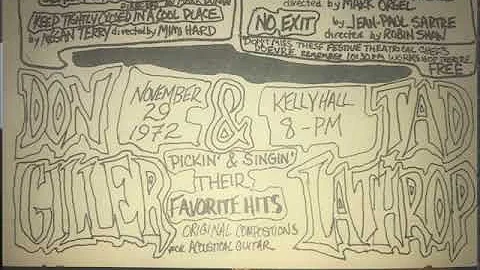 directed by MARK ORGEL
KEEP TIGHTLY CLOSED IN A COOL PLACE
by MEGAN TERRY directed by MIMI HARD
NO EXIT by JEAN-PAUL SARTRE
directed by ROBIN SHAW
DON'T MISS THESE FESTIVE THEATRICAL CHEFS
DOEUVRE. REMEMBER 10:30 P.M. WORKSHOP THEATRE.
FREE
DON & TAD
NOVEMBER
29
1972
KELLY HALL
8-PM
GILLER LATHROP
PICKIN' & SINGIN'
THEIR
FAVORITE HITS
ORIGINAL COMPOSITIONS
FOR ACOUSTICAL GUITAR